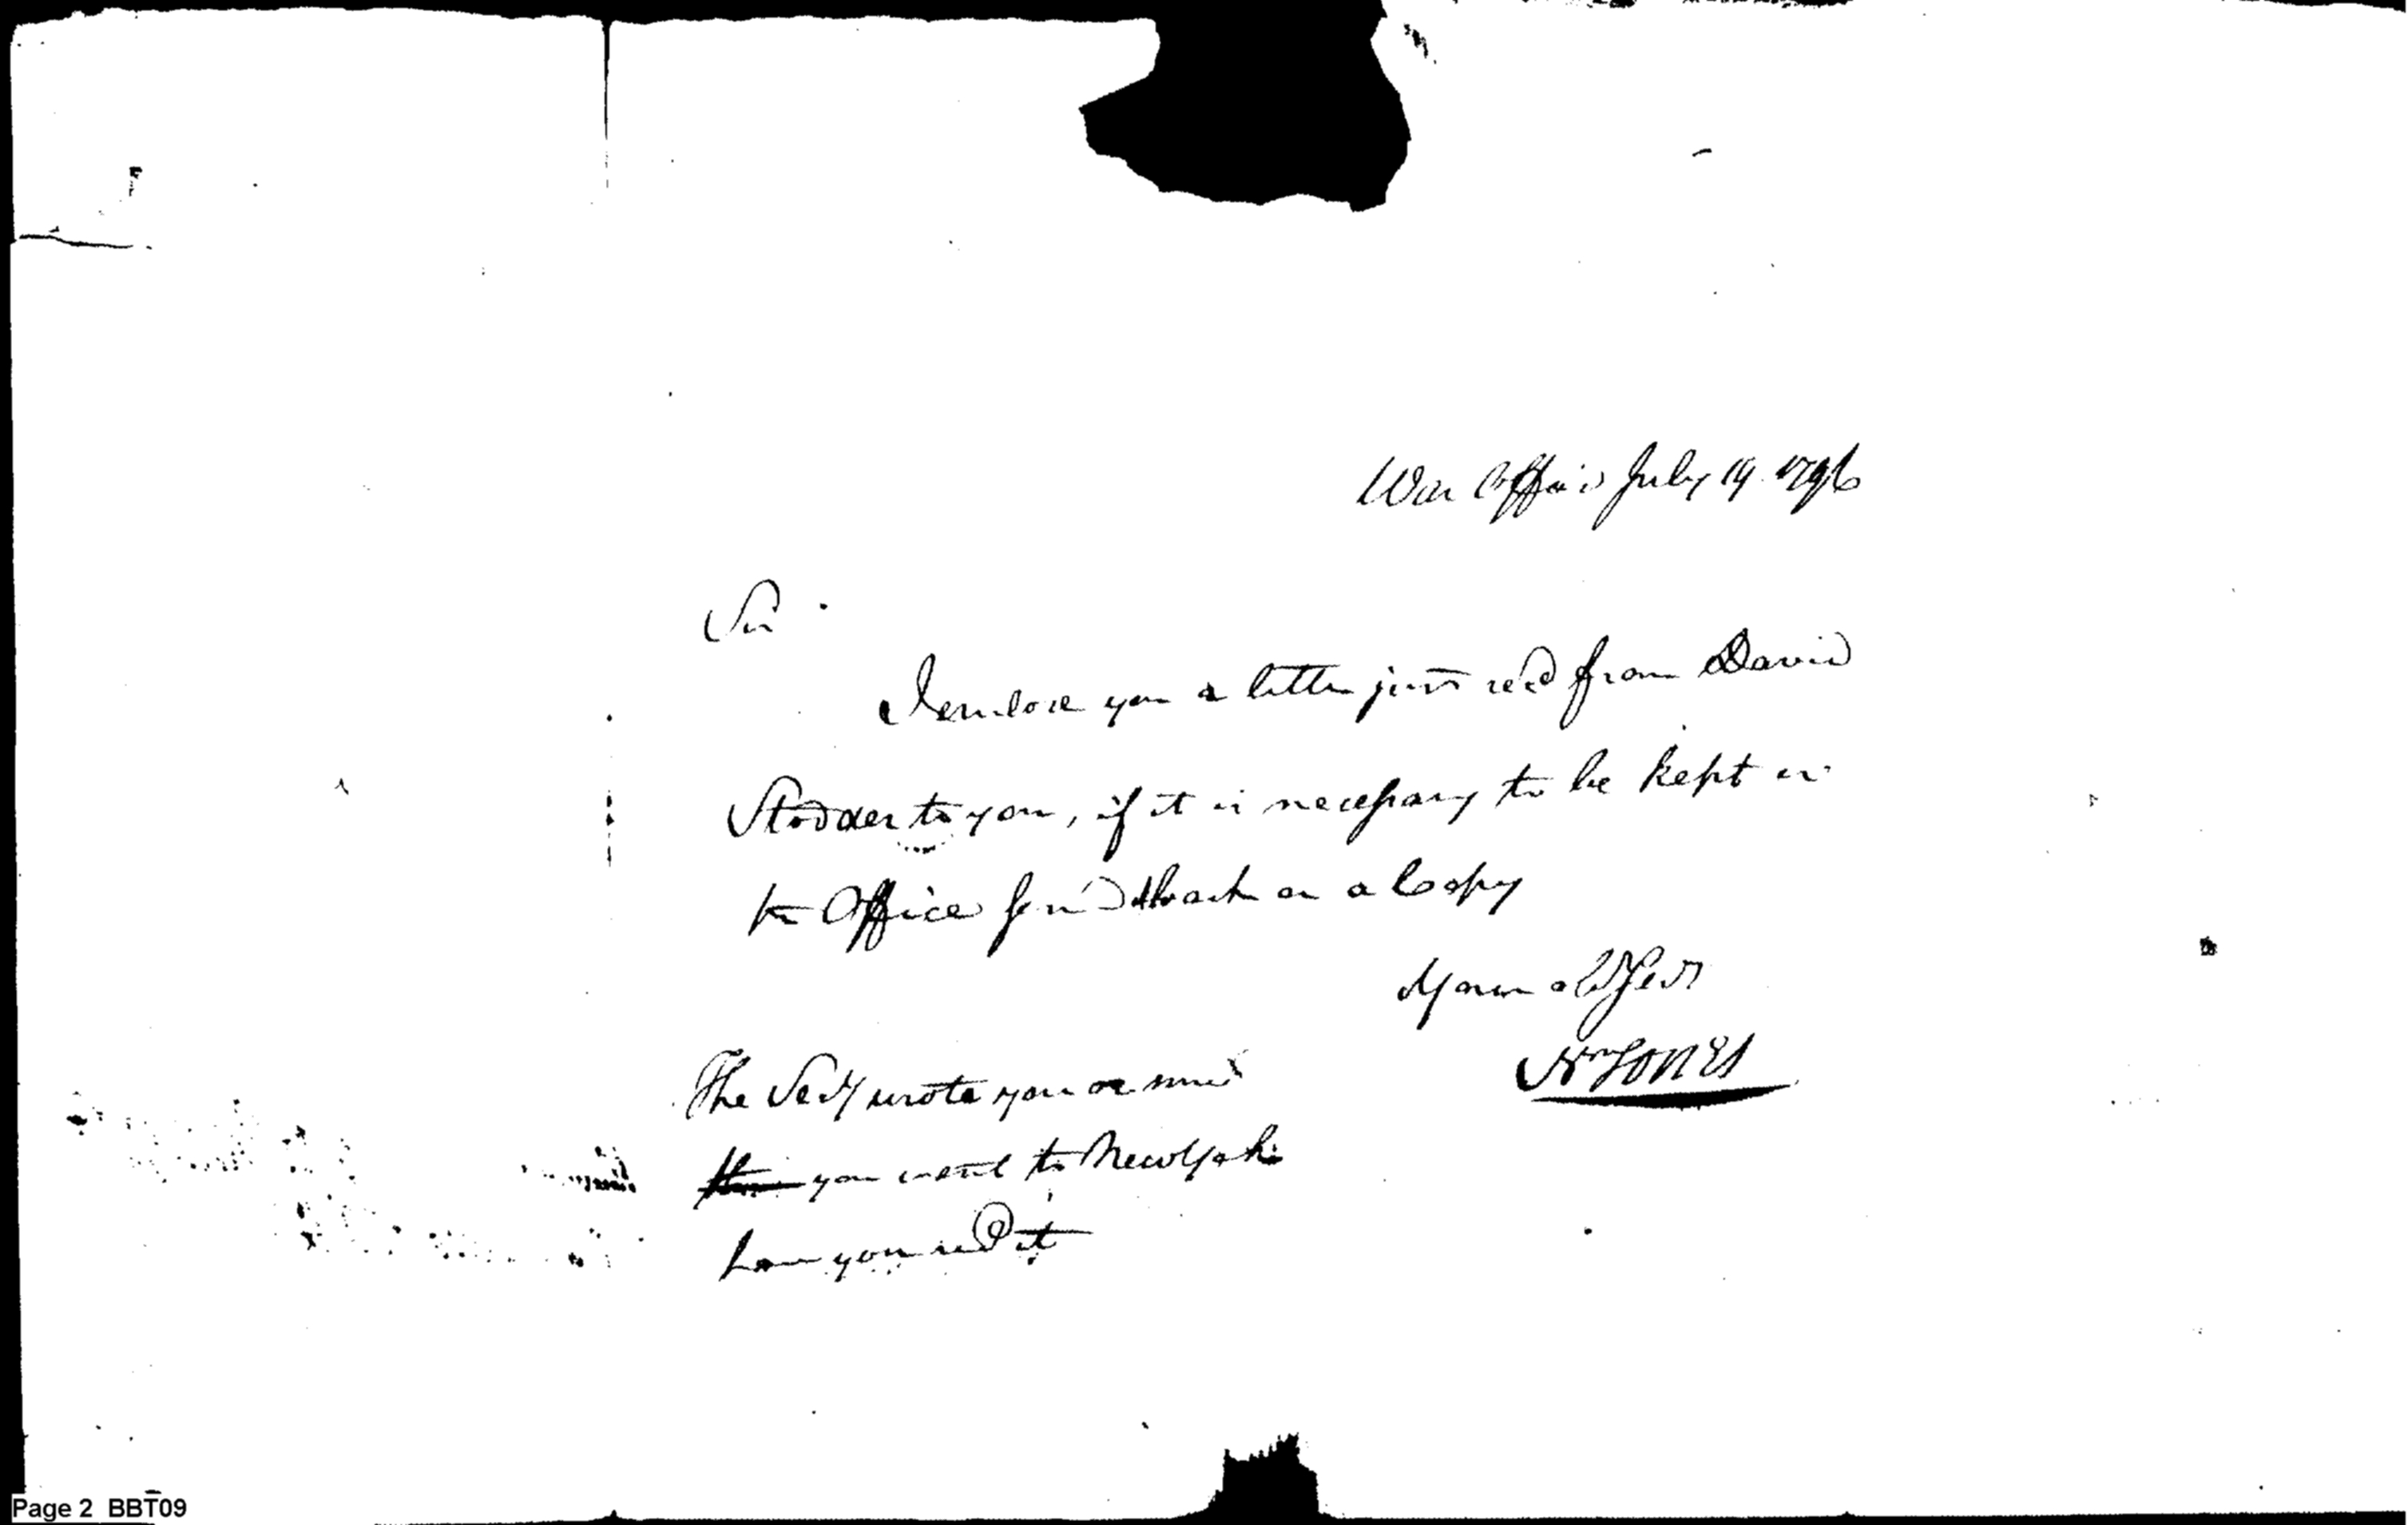 War Office July 19 1796
Sir
I enclose you a letter just recd from David
Stodder to you, if it is necessary to be kept in
the Office send it back or a Copy
Your ob Sert
Wm JONES
The Secy wrote you
you went to New York
have you recd it
Page 2 BBT09